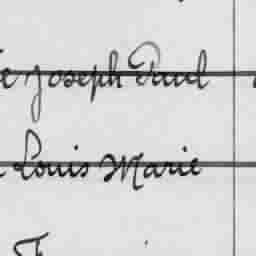 Joseph Paul
Louis Marie